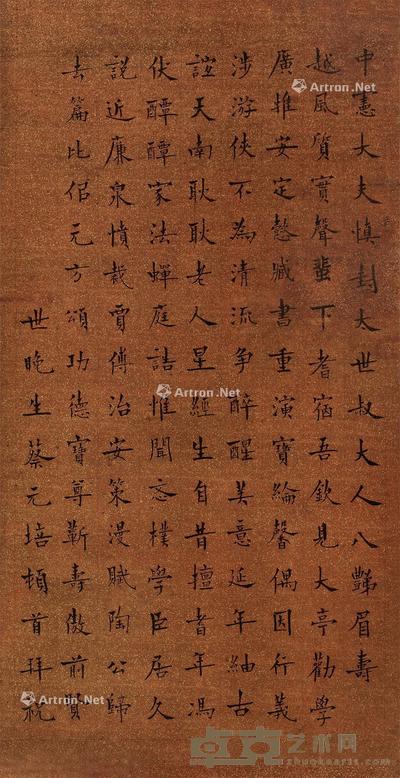 中憲大夫慎封大世叔大人八豒眉壽
越風質實聲蜚下耆宿吾欽見大亭勸學
廣推安定慤臧書重演寶綸馨偶因行義
涉游俠不為清流爭醉醒美意延年紬古
誼天南耿耿老人星經生自昔擅耆年馮
伏醰醰家法蟬庭誥惟聞忞樸學臣居久
說近廉泉憤裁賈傅治安策漫賦陶公歸
去篇比侶元方頌功德寶尊蘄壽傲前賢
世晚生蔡元培頓首拜祝
Artron.Net
Artron.Net
Artron.Net
Artron.Net
艺术网